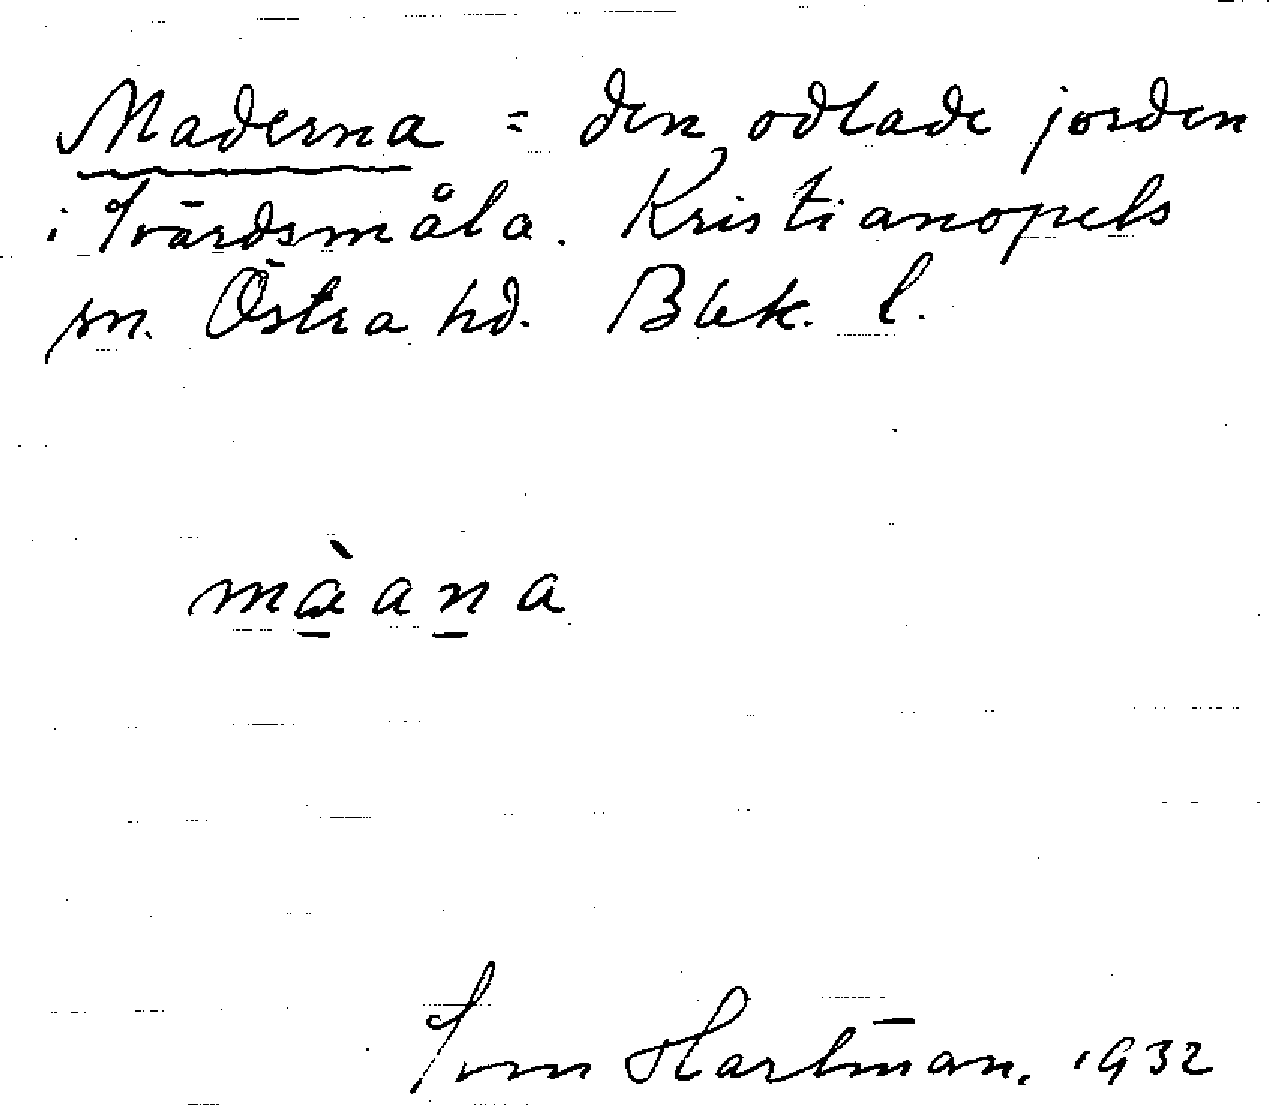 Maderna = den odlade jorden
i Ivardsmåla. Kristianopels
sn. Östra hd. Blek. l.
màana
Ivar Hartman. 1932